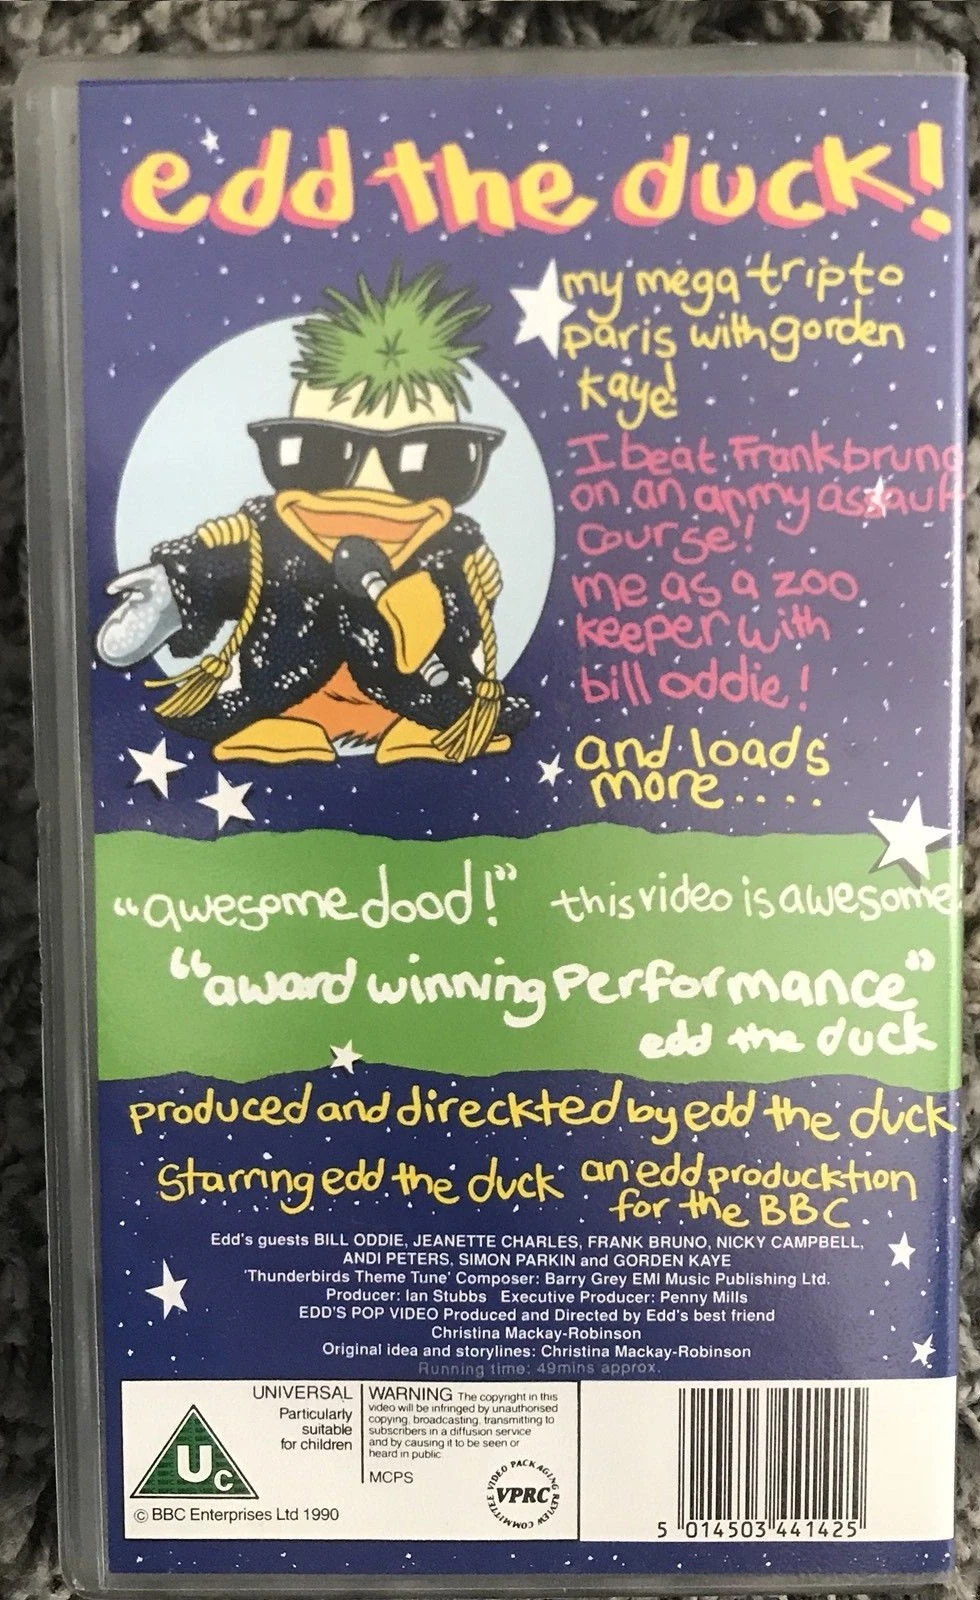 edd the duck!
my mega trip to
paris with gorden
kaye!
I beat Frank bruno
on an anmy assault
course!
me as a zoo
keeper with
bill oddie!
and loads
more....
"awesome dood!" this video is awesome
"award winning Performance"
edd the duck
produced and direckted by edd the duck
Starring edd the duck an edd producktion
for the BBC.
Edd's guests BILL ODDIE, JEANETTE CHARLES, FRANK BRUNO, NICKY CAMPBELL,
ANDI PETERS, SIMON PARKIN and GORDEN KAYE
'Thunderbirds Theme Tune' Composer: Barry Grey EMI Music Publishing Ltd.
Producer: Ian Stubbs Executive Producer: Penny Mills
EDD'S POP VIDEO Produced and Directed by Edd's best friend
Christina Mackay-Robinson
Original idea and storylines: Christina Mackay-Robinson
Running time: 49mins approx.
UNIVERSAL
Particularly
suitable
for children
Uc
WARNING The copyright in this
video will be infringed by unauthorised
copying, broadcasting, transmitting to
subscribers in a diffusion service
and by causing it to be seen or
heard in public
MCPS
VIDEO PACKAGING REVIEW COMMITTEE
VPRC
© BBC Enterprises Ltd 1990
5 014503 441425